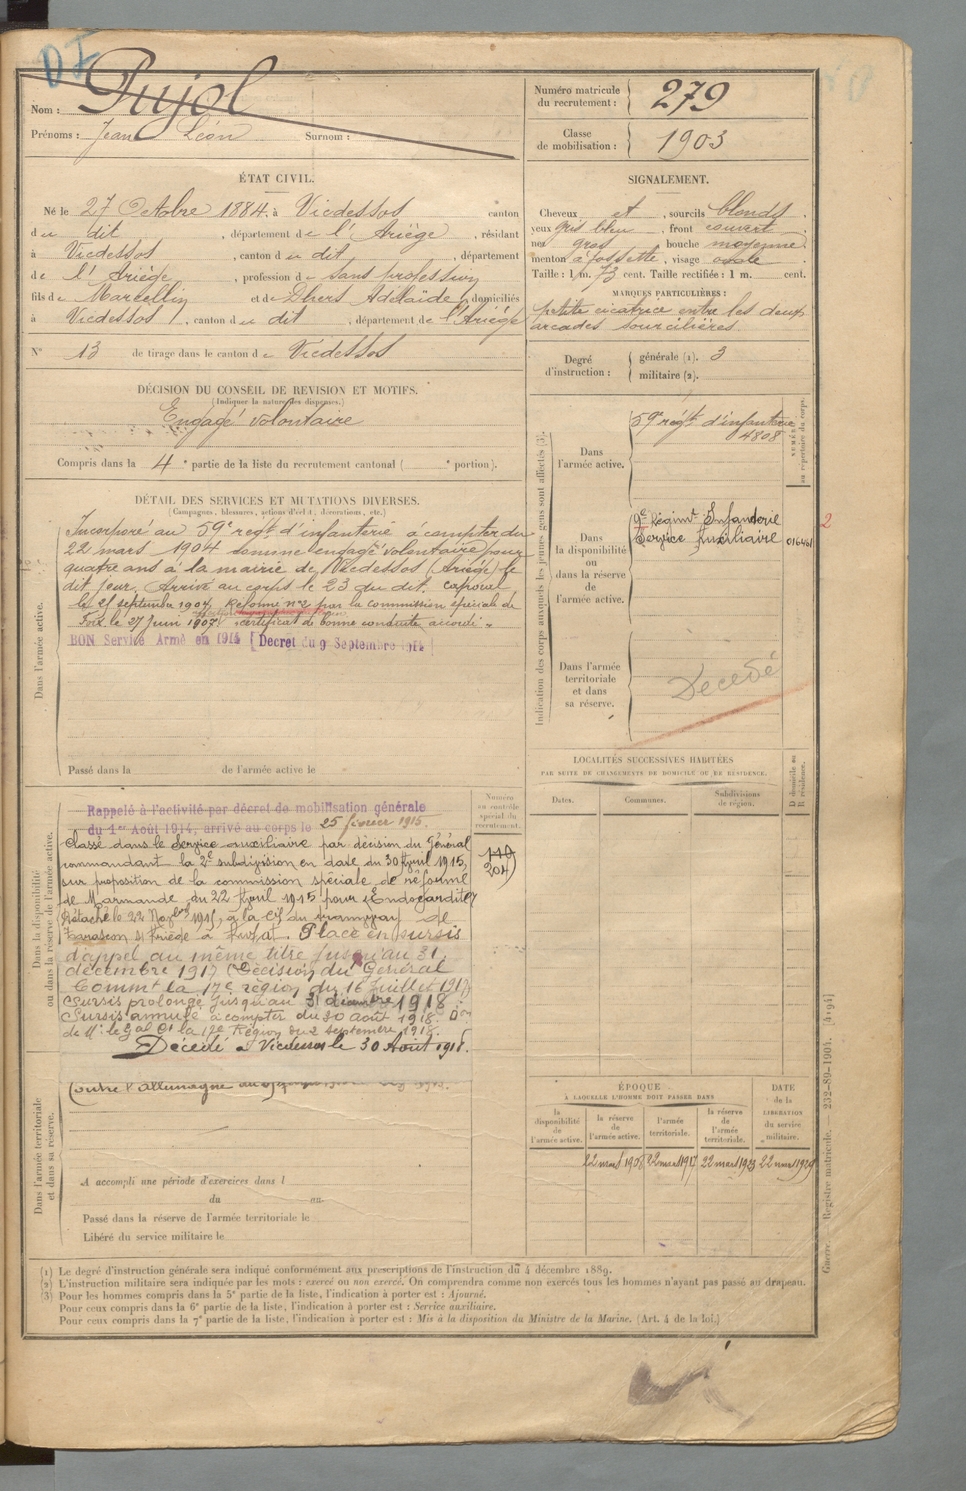 DI
Nom : Pujol
Prénoms : Jean Léon Surnom :
Numéro matricule du recrutement : 279
Classe de mobilisation : 1903
ÉTAT CIVIL.
Né le 27 Octobre 1884, à Vicdessos canton
du dit, département de l'Ariège, résidant
à Vicdessos, canton du dit, département
de l'Ariège, profession de sans profession
fils de Marcellin et de Dhers Adélaïde, domiciliés
à Vicdessos, canton du dit, département de l'Ariège
N° 13 de tirage dans le canton de Vicdessos
SIGNALEMENT.
Cheveux et, sourcils blonds,
yeux gris bleu, front couvert,
nez gros bouche moyenne
menton à fossette, visage ovale
Taille : 1 m. 73 cent. Taille rectifiée : 1 m. cent.
MARQUES PARTICULIÈRES :
petite cicatrice entre les deux
arcades sourcilières
Degré d'instruction : générale (1). 3
militaire (2).
DÉCISION DU CONSEIL DE REVISION ET MOTIFS.
(Indiquer la nature des dispenses.)
Engagé volontaire
Compris dans la 4e partie de la liste du recrutement cantonal ( e portion).
DÉTAIL DES SERVICES ET MUTATIONS DIVERSES.
(Campagnes, blessures, actions d'éclat, décorations, etc.)
Dans l'armée active.
Incorporé au 59e régt d'infanterie à compter du
22 mars 1904 comme engagé volontaire pour
quatre ans à la mairie de Vicdessos (Ariège) le
dit jour. Arrivé au corps le 23 du dit. caporal
le 25 septembre 1904. Réformé n° 2 par la commission spéciale de
Foix le 27 Juin 1907. certificat de bonne conduite accordé.
BON Service Armé en 1914 [Decret du 9 Septembre 1914]
Passé dans la de l'armée active le
Indication des corps auxquels les jeunes gens sont affectés (3).
NUMÉRO au répertoire du corps.
Dans l'armée active.
59e régt d'infanterie
4808
Dans la disponibilité ou dans la réserve de l'armée active.
9e Régimt Infanterie
Service Auxiliaire 016461
2
Dans l'armée territoriale et dans sa réserve.
Décédé
LOCALITÉS SUCCESSIVES HABITÉES
PAR SUITE DE CHANGEMENTS DE DOMICILE OU DE RÉSIDENCE.
Dates. Communes. Subdivisions de région.
D domicile ou R résidence.
Dans la disponibilité ou dans la réserve de l'armée active.
Numéro au contrôle spécial du recrutement.
110
204
Rappelé à l'activité par décret de mobilisation générale
du 1er Août 1914, arrivé au corps le 25 février 1915.
Classé dans le Service auxiliaire par décision du Général
commandant la 2e subdivision en date du 30 Avril 1915,
sur proposition de la commission spéciale de réforme
de Marmande du 22 Avril 1915 pour Endocardite
Détaché le 22 Novbre 1915, à la Cie du tramway de
Tarascon s/ Ariège à Auzat. Placé en sursis
d'appel au même titre jusqu'au 31
décembre 1917 (Décision du Général
Commt la 17e région du 16 juillet 1917)
Sursis prolongé jusqu'au 31 décembre 1918
Sursis annulé à compter du 30 août 1918. Don
de Mr. le Gal Ct la 17e Région du 2 septembre 1918.
Décédé à Vicdessos le 30 Août 1918.
Dans l'armée territoriale et dans sa réserve.
Contre l'Allemagne
A accompli une période d'exercices dans l
du au
Passé dans la réserve de l'armée territoriale le
Libéré du service militaire le
ÉPOQUE
À LAQUELLE L'HOMME DOIT PASSER DANS
la disponibilité de l'armée active.
la réserve de l'armée active.
l'armée territoriale.
la réserve de l'armée territoriale.
DATE de la LIBÉRATION du service militaire.
22 mars 1908 22 mars 1917 22 mars 1923 22 mars 1929
Guerre. — Registre matricule. — 232-89-1904. [4494]
(1) Le degré d'instruction générale sera indiqué conformément aux prescriptions de l'instruction du 4 décembre 1889.
(2) L'instruction militaire sera indiquée par les mots : exercé ou non exercé. On comprendra comme non exercés tous les hommes n'ayant pas passé au drapeau.
(3) Pour les hommes compris dans la 5e partie de la liste, l'indication à porter est : Ajourné.
Pour ceux compris dans la 6e partie de la liste, l'indication à porter est : Service auxiliaire.
Pour ceux compris dans la 7e partie de la liste, l'indication à porter est : Mis à la disposition du Ministre de la Marine. (Art. 4 de la loi.)